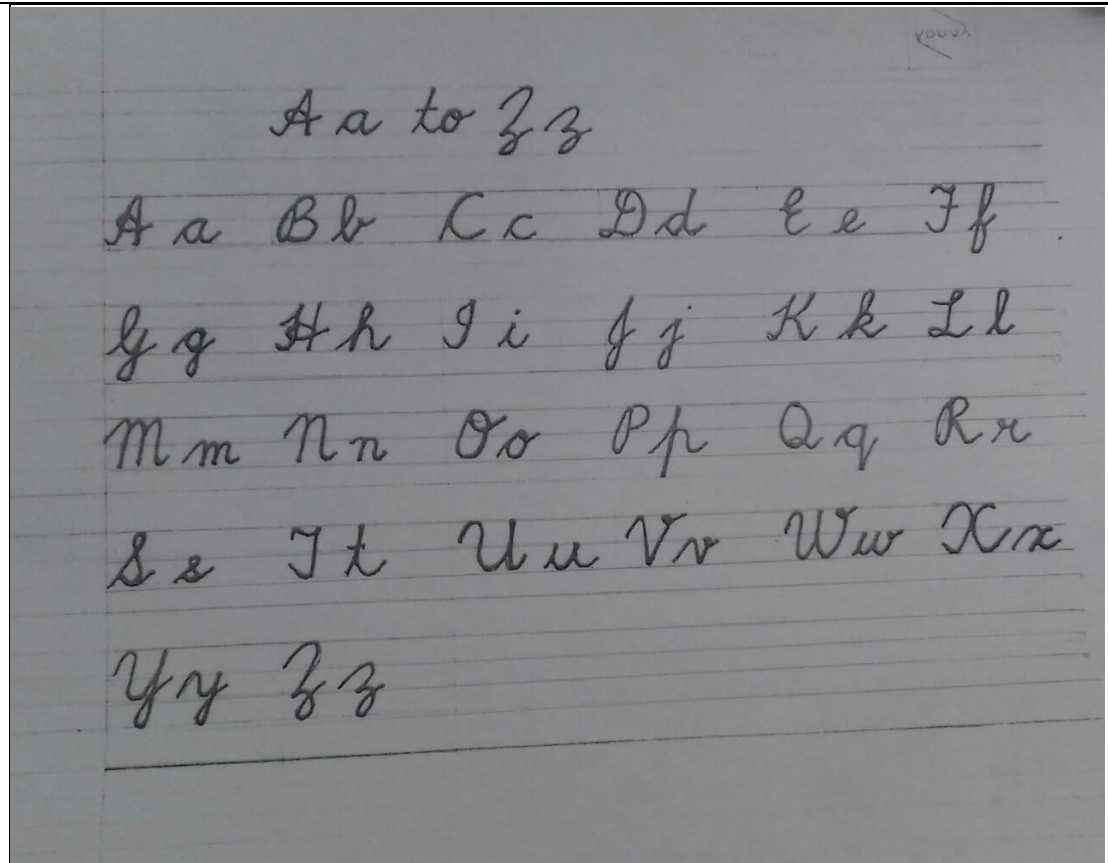 A a to Z z
A a B b C c D d E e F f
G g H h I i J j K k L l
M m N n O o P p Q q R r
S s T t U u V v W w X x
Y y Z z